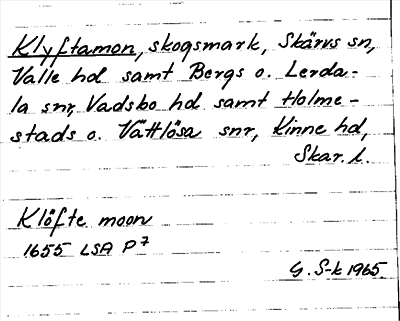 Klyftamon, skogsmark, Skärvs sn,
Valle hd samt Bergs o. Lerda-
la snr, Vadsbo hd samt Holme-
stads o. Vättlösa snr, Kinne hd,
Skar. l.
Klöfte moon
1655 LSA P7
G. S-k 1965.